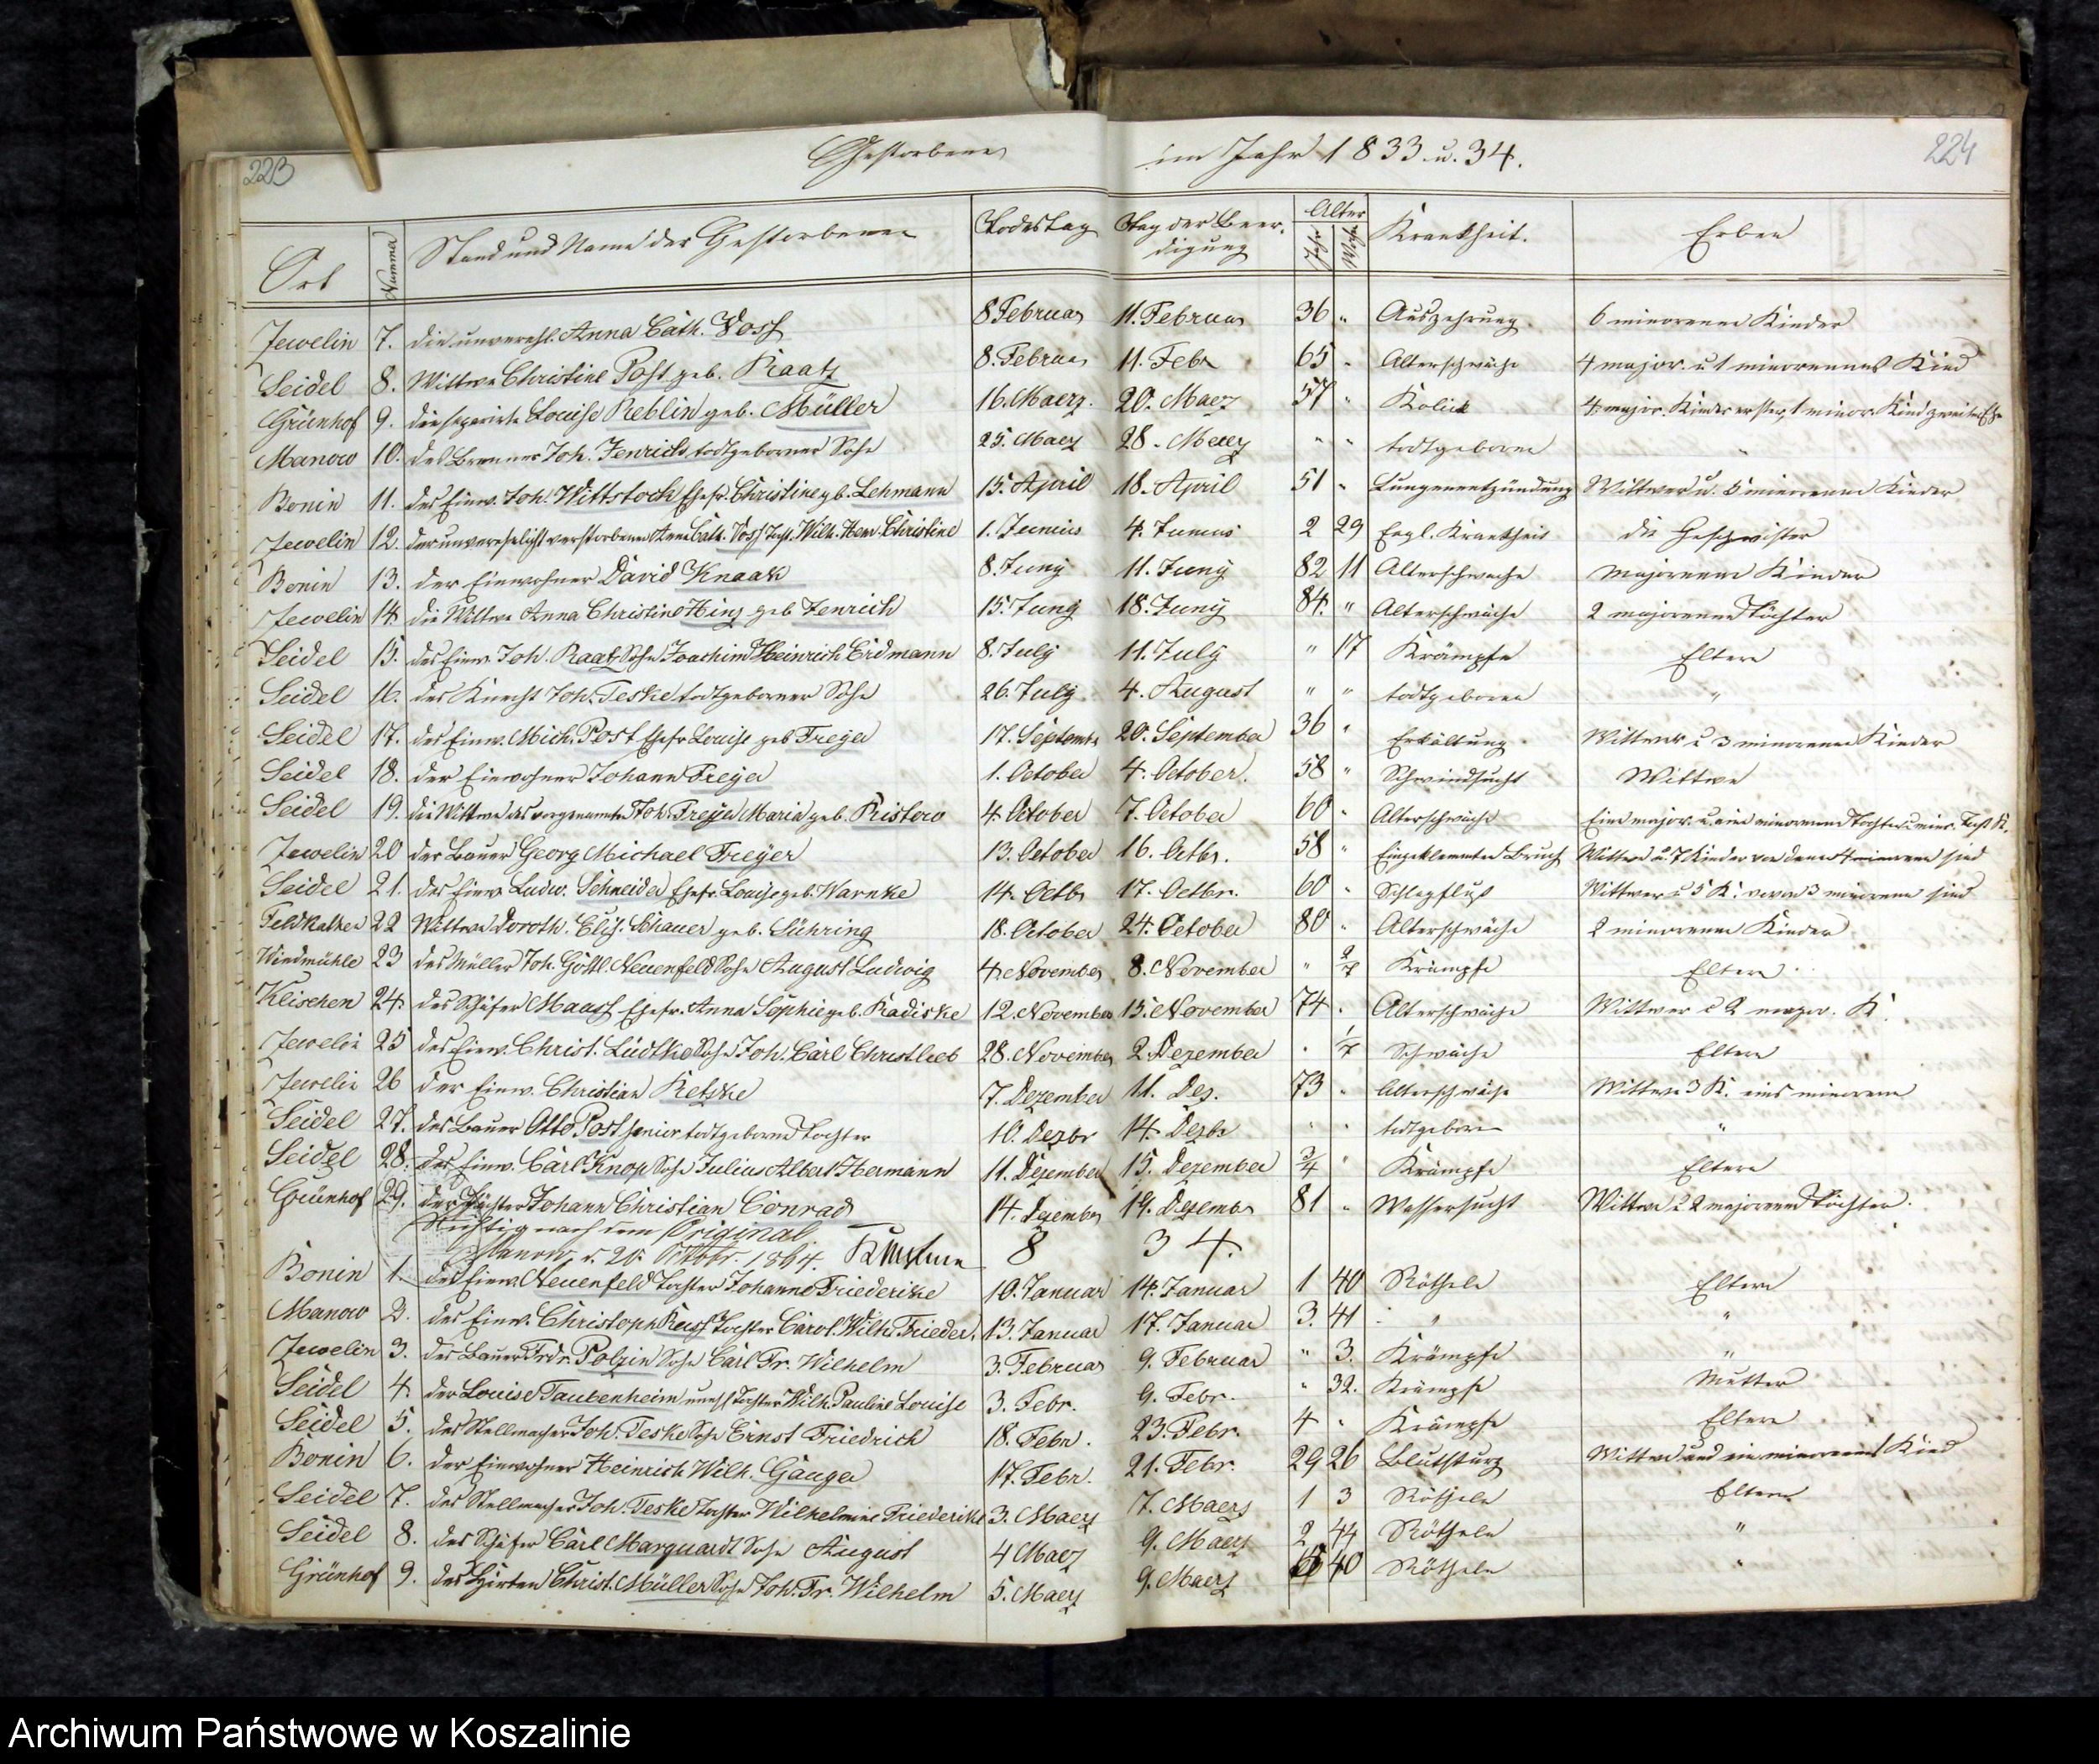 223 Gestorbene im Jahr 1833 u. 34. 224
Ort Numma Stand und Name der Gestorbenen Todestag Tag der Beerdigung Alter Jahr Woch Krankheit. Erben
Jewelin 7. die unverehl. Anna Cath. Voss 8 Februar 11. Februar 36 " Auszehrung. 6 minorenne Kinder
Seidel 8. Wittwe Christine Post geb. Raatz 8. Februar 11. Febr 65 " Alterschwäche 4 major. u 1 minorennes Kind
Grünhof 9. die separirte Louise Reblin geb. Müller 16. Maerz. 20. Maerz 57 " Kolick 4 major. Kinder erster, 1 minor. Kind zweiter Ehe
Manow 10. des Brenner Joh. Jenrich todtgeborner Sohn 25. Maerz 28. Maerz " " todtgeboren "
Bonin 11. des Einw. Joh. Wittstock Ehefr. Christine geb. Lehmann 15. April 18. April 51 " Lungenentzündung Wittwer u. 5 minorenne Kinder
Jewelin 12. der unverehelicht verstorbenen Anna Cath. Voss Tocht. Wilh. Henr. Christine 1. Junius 4. Junius 2 29 Engl. Krankheit die Geschwister
Bonin 13. der Einwohner David Knaak 8. Juny 11. Juny 82 11 Alterschwäche majorenne Kinder
Jewelin 14. die Wittwe Anna Christine Hinz geb. Jenrich 15. Juny 18. Juny 84. " Alterschwäche 2 majorenne Töchter
Seidel 15. des Einw. Joh. Raatz Sohn Joachim Heinrich Erdmann 8. July 11. July " 17 Krämpfe Eltern
Seidel 16. des Knecht Joh. Teske todtgeborner Sohn 26. July 4. August " " todtgeboren "
Seidel 17. des Einw. Mich. Post Ehefr. Louise geb Freyer 17. Septembr 20. September 36 " Erkältung. Wittwer u 3 minorenne Kinder
Seidel 18. der Einwohner Johann Freyer 1. October 4. October. 58 " Schwindsucht Wittwe
Seidel 19. die Wittwe des vorgenannten Joh. Freyer Maria geb. Ristow 4 October 7. October 60 " Alterschwäche Eine major. u. eine minorenne Tochter
Jewelin 20 der Bauer Georg Michael Freyer 13. October 16. Octbr. 58 " Eingeklemmter Bruch Wittwe u. 7 Kinder von denen 4 minorenn sind
Seidel 21. des Einw. Ludw. Schneider Ehefr. Louise geb. Warnke 14. Octbr 17. Octbr. 60 " Schlagfluß Wittwer u 5 K. wovon 3 minorenn sind
Feldkathen 22 Wittwe Doroth. Elis. Schauer geb. Lühring 18. October 24. October 80 " Alterschwäche 2 minorenne Kinder
Windmühle 23 des Müller Joh. Gottl. Neuenfeld Sohn August Ludwig 4. November 8. November " 2/7 Krämpfe Eltern
Klischen 24. des Schäfer Maass Ehefr. Anna Sophie geb. Radiske 12. November 15. November 74 " Alterschwäche Wittwer u 2 major. K.
Jewelin 25 des Einw. Christ. Lüdtke Sohn Joh. Carl Christlieb 28. November 2. Dezember " 1/7 Schwäche Eltern
Jewelin 26 der Einw. Christian Retzke 7. Dezember 11. Dez. 73 " Alterschwäche Wittwe 3 K. eins minorenn
Seidel 27. des Bauer Otto Post senior todtgeborne Tochter 10. Dezbr 14. Dezbr " " todtgeboren "
Seidel 28. des Einw. Carl Knop Sohn Julius Albert Hermann 11. Dezember 15. Dezember 3/4 " Krämpfe Eltern
Grünhof 29. der Pächter Johann Christian Conrad 14. Dezember 19. Dezembr 81 " Wassersucht Wittwe u 2 majorenne Töchter.
Richtig nach dem Original.
Manow, d. 20. Octobr. 1864.
8 3 4.
Bonin 1. des Einw. Neuenfeld Tochter Johanne Friedericke 10. Januar 14. Januar 1 40 Rötheln Eltern
Manow 2. des Einw. Christoph Tochter Carol. Wilh. Frieder. 13. Januar 17. Januar 3. 41 " "
Jewelin 3. des Bauer Frdr. Polzin Sohn Carl Fr. Wilhelm 3. Februar 9. Februar " 3. Krämpfe "
Seidel 4. der Louise Taubenheim unehl Tochter Wilh. Pauline Louise 3. Febr. 9. Febr. " 32. Krämpfe Mutter
Seidel 5. des Stellmacher Joh. Teske Sohn Ernst Friedrich 18. Febr. 23. Febr. 4 " Krämpfe Eltern
Bonin 6. der Einwohner Heinrich Wilh. Gauger 17. Febr. 21. Febr. 29 26 Blutsturz Wittwe und ein minorennes Kind
Seidel 7. des Stellmacher Joh. Teske Tochter Wilhelmine Friedericke 3. Maerz 7. Maerz 1 3 Rötheln Eltern
Seidel 8. des Schäfer Carl Marquardt Sohn August 4 Maerz 9. Maerz 2 44 Rötheln "
Grünhof 9. des Hirten Christ. Müller Sohn Joh. Fr. Wilhelm 5. Maerz 9. Maerz 40 Rötheln "
Archiwum Państwowe w Koszalinie